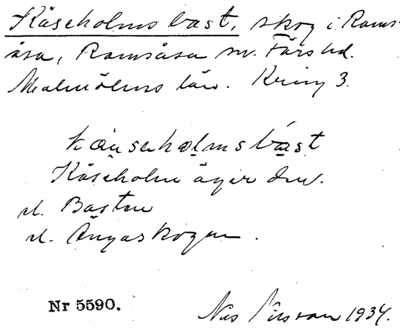 Käseholms bast, skog i Rams-
åsa, Ramsåsa sn. Färs hd.
Malmöhus län. Kring 3.
kæusəholmsbást
Käseholm äger den.
el. Basten
el. Ängaskogen.
Nr 5590.
Nils 1934.